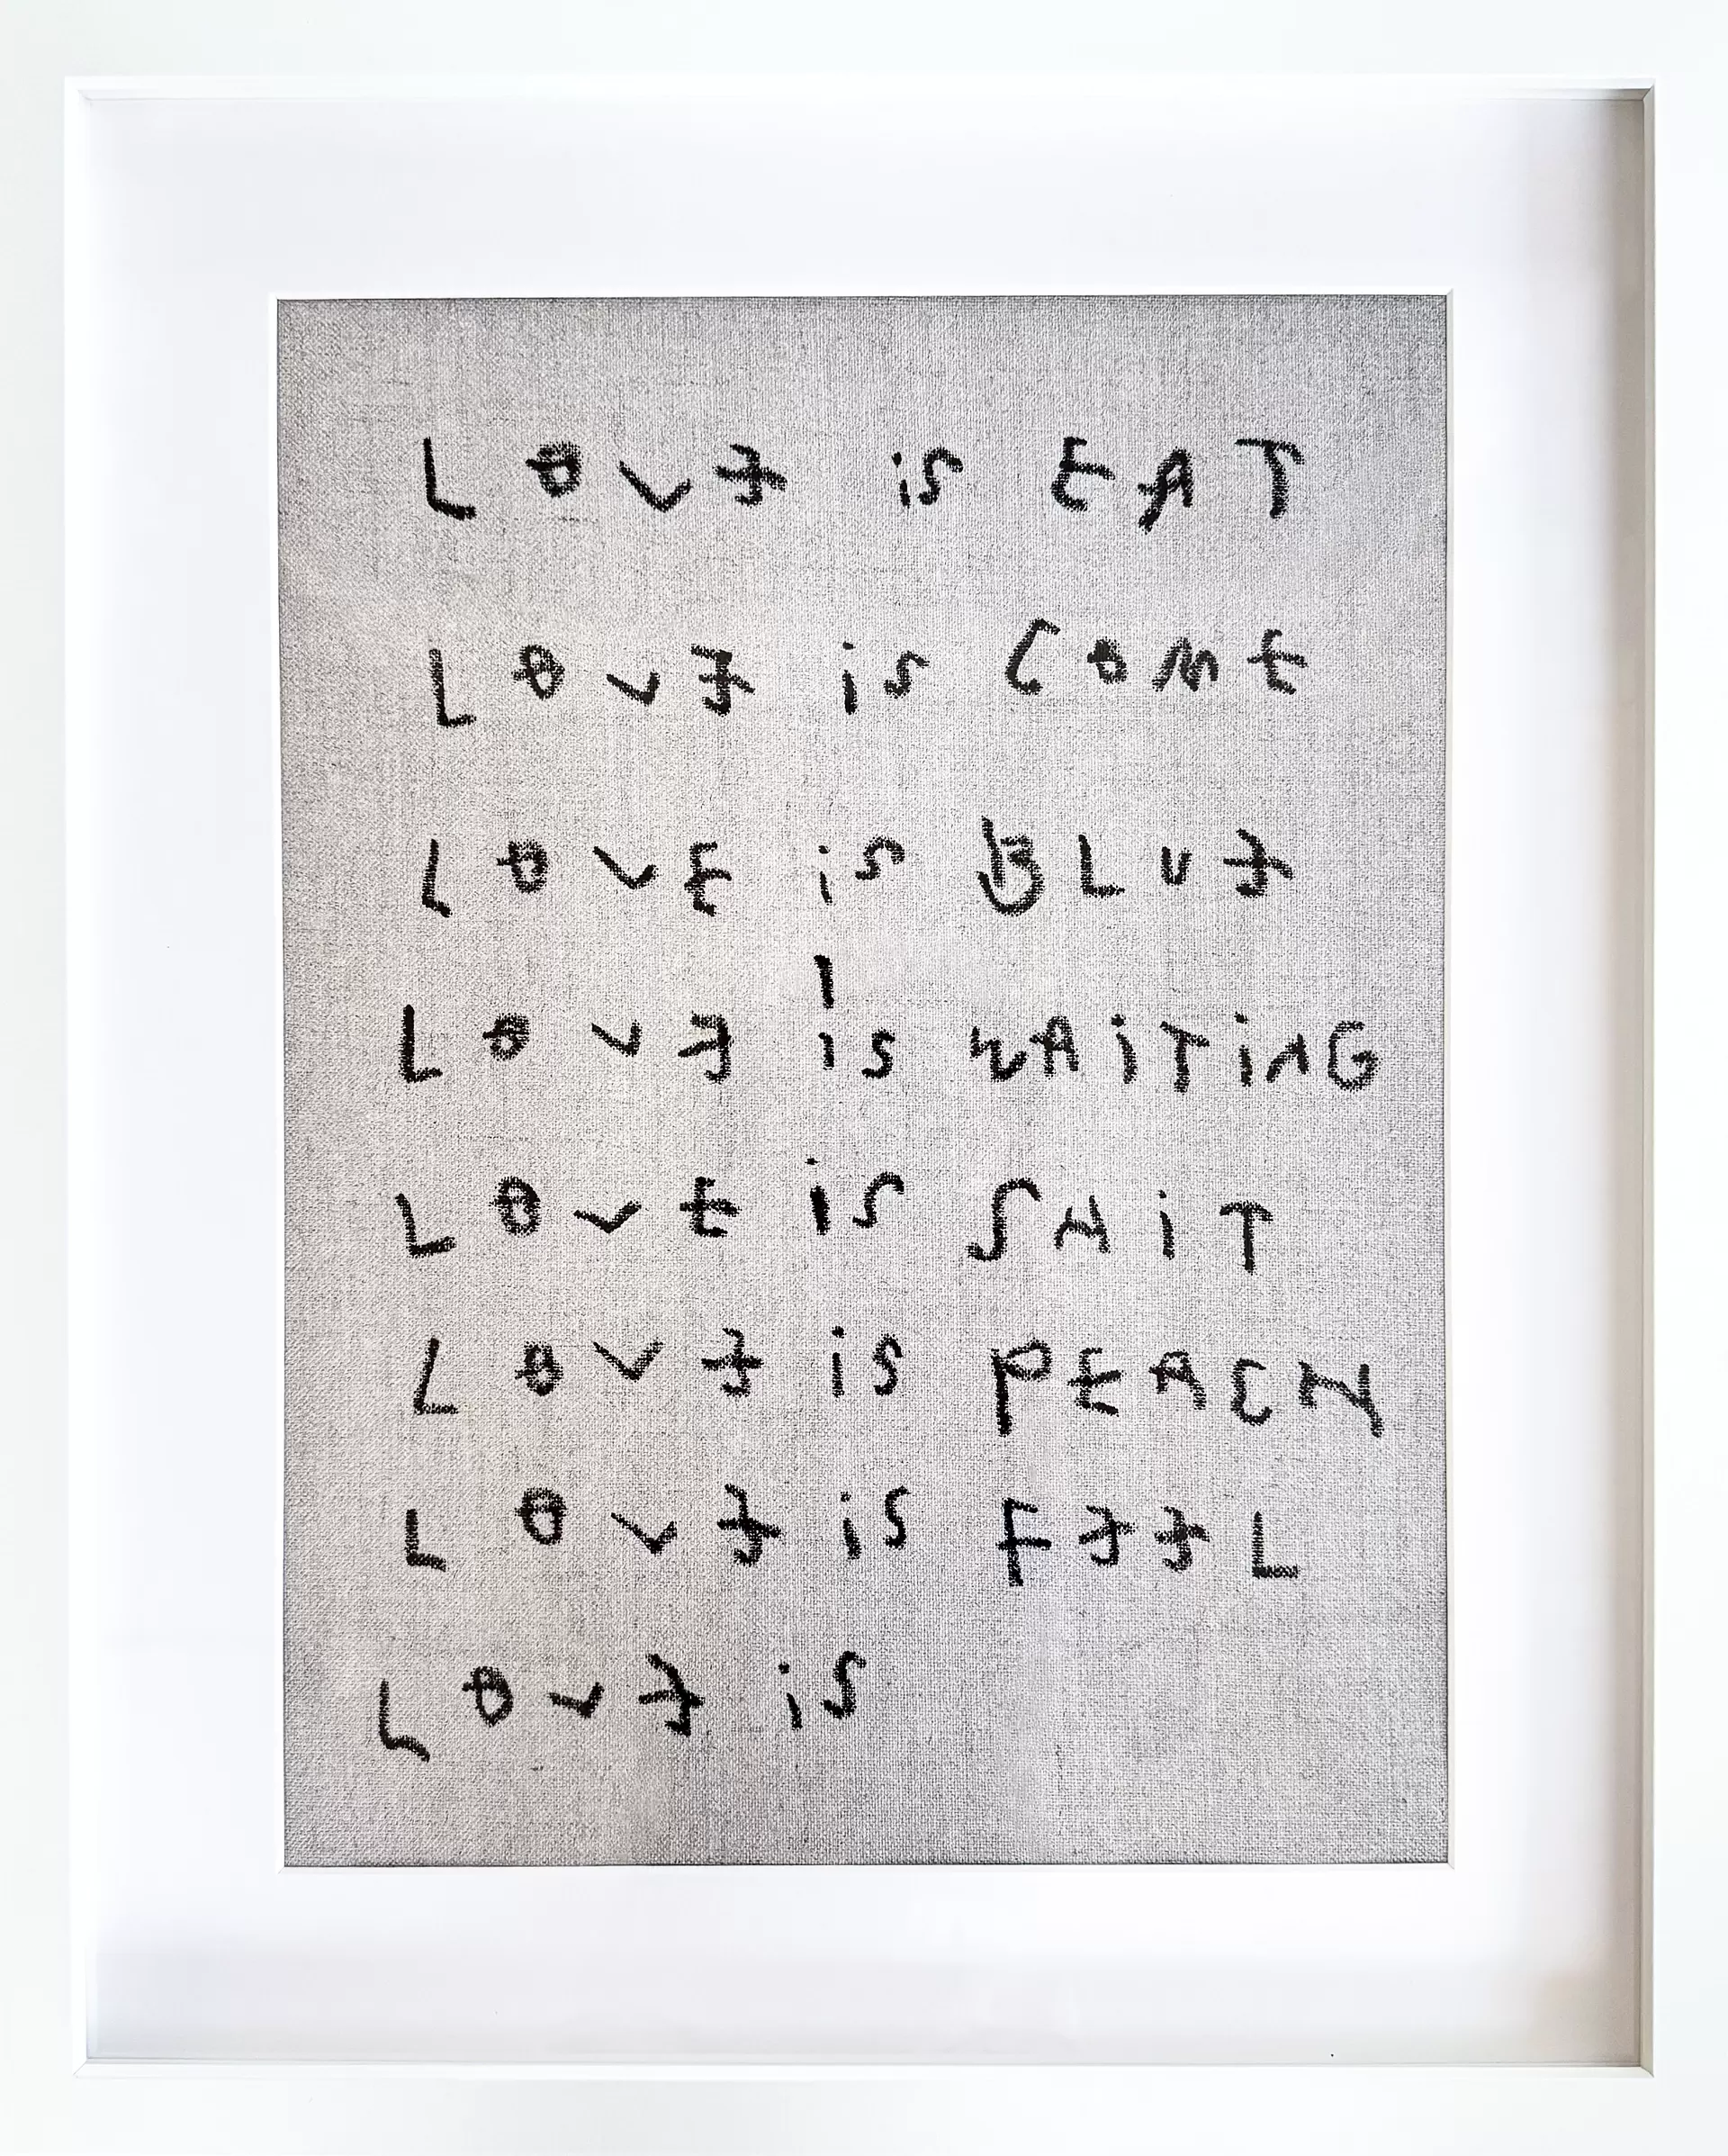 LOVE is EAT
LOVE is COME
LOVE is BLUE
LOVE is WAITiNG
LOVE is SHiT
LOVE is PEACH
LOVE is FEEL
LOVE is